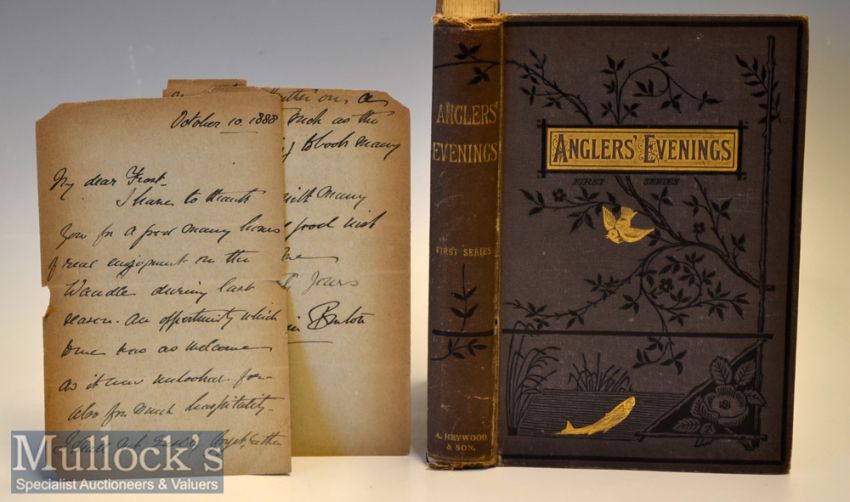 October 10. 1888
My dear Frost.
I have to thank
you for a good many hours
of real enjoyment on the
Wandle during last
season. An opportunity which
was as welcome
as it was unlooked for
Also for much hospitality.
on a
such as the
of books many
with many
good wish
Yours
Buxton
ANGLERS'
EVENINGS
FIRST SERIES
A. HEYWOOD
& SON.
ANGLERS' EVENINGS
FIRST SERIES
Mullock's
Specialist Auctioneers & Valuers